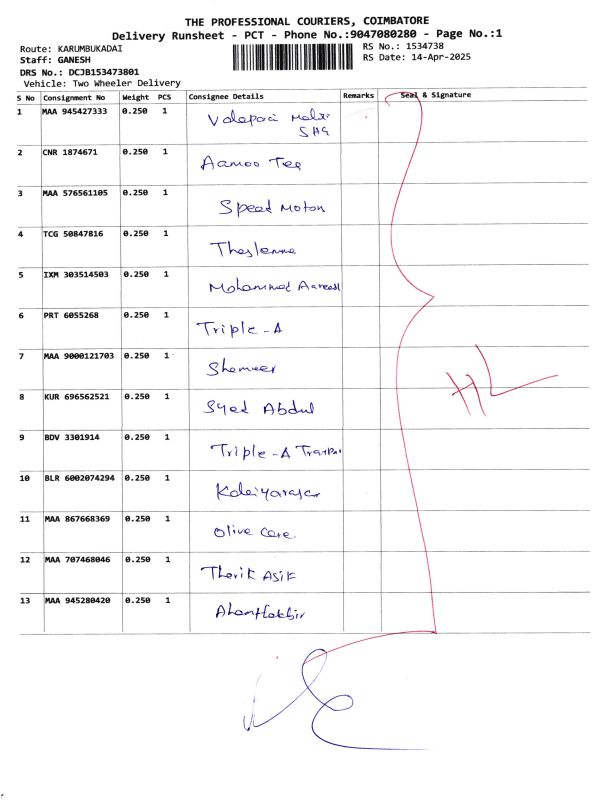 THE PROFESSIONAL COURIERS, COIMBATORE
Delivery Runsheet - PCT - Phone No.:9047080280 - Page No.:1
Route: KARUMBUKADAI RS No.: 1534738
Staff: GANESH RS Date: 14-Apr-2025
DRS No.: DCJB153473801
Vehicle: Two Wheeler Delivery
S No Consignment No Weight PCS Consignee Details Remarks Seal & Signature
1 MAA 945427333 0.250 1
SHG
2 CNR 1874671 0.250 1 Aamoo Tee
3 MAA 576561105 0.250 1 Speed Moton
4 TCG 50847816 0.250 1
5 IXM 303514503 0.250 1 Mohammed
6 PRT 6055268 0.250 1 Triple -A
7 MAA 9000121703 0.250 1 Shemeer
8 KUR 696562521 0.250 1 Syed Abdul
9 BDV 3301914 0.250 1 Triple -A
10 BLR 6002074294 0.250 1 Kaleiyarasar
11 MAA 867668369 0.250 1 Olive Care.
12 MAA 707468046 0.250 1 Therik Asik
13 MAA 945280420 0.250 1